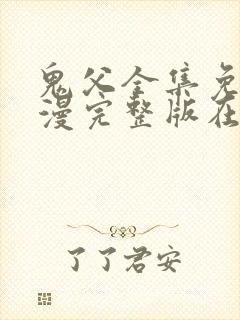 鬼父全集免
漫完整版在
了了君安